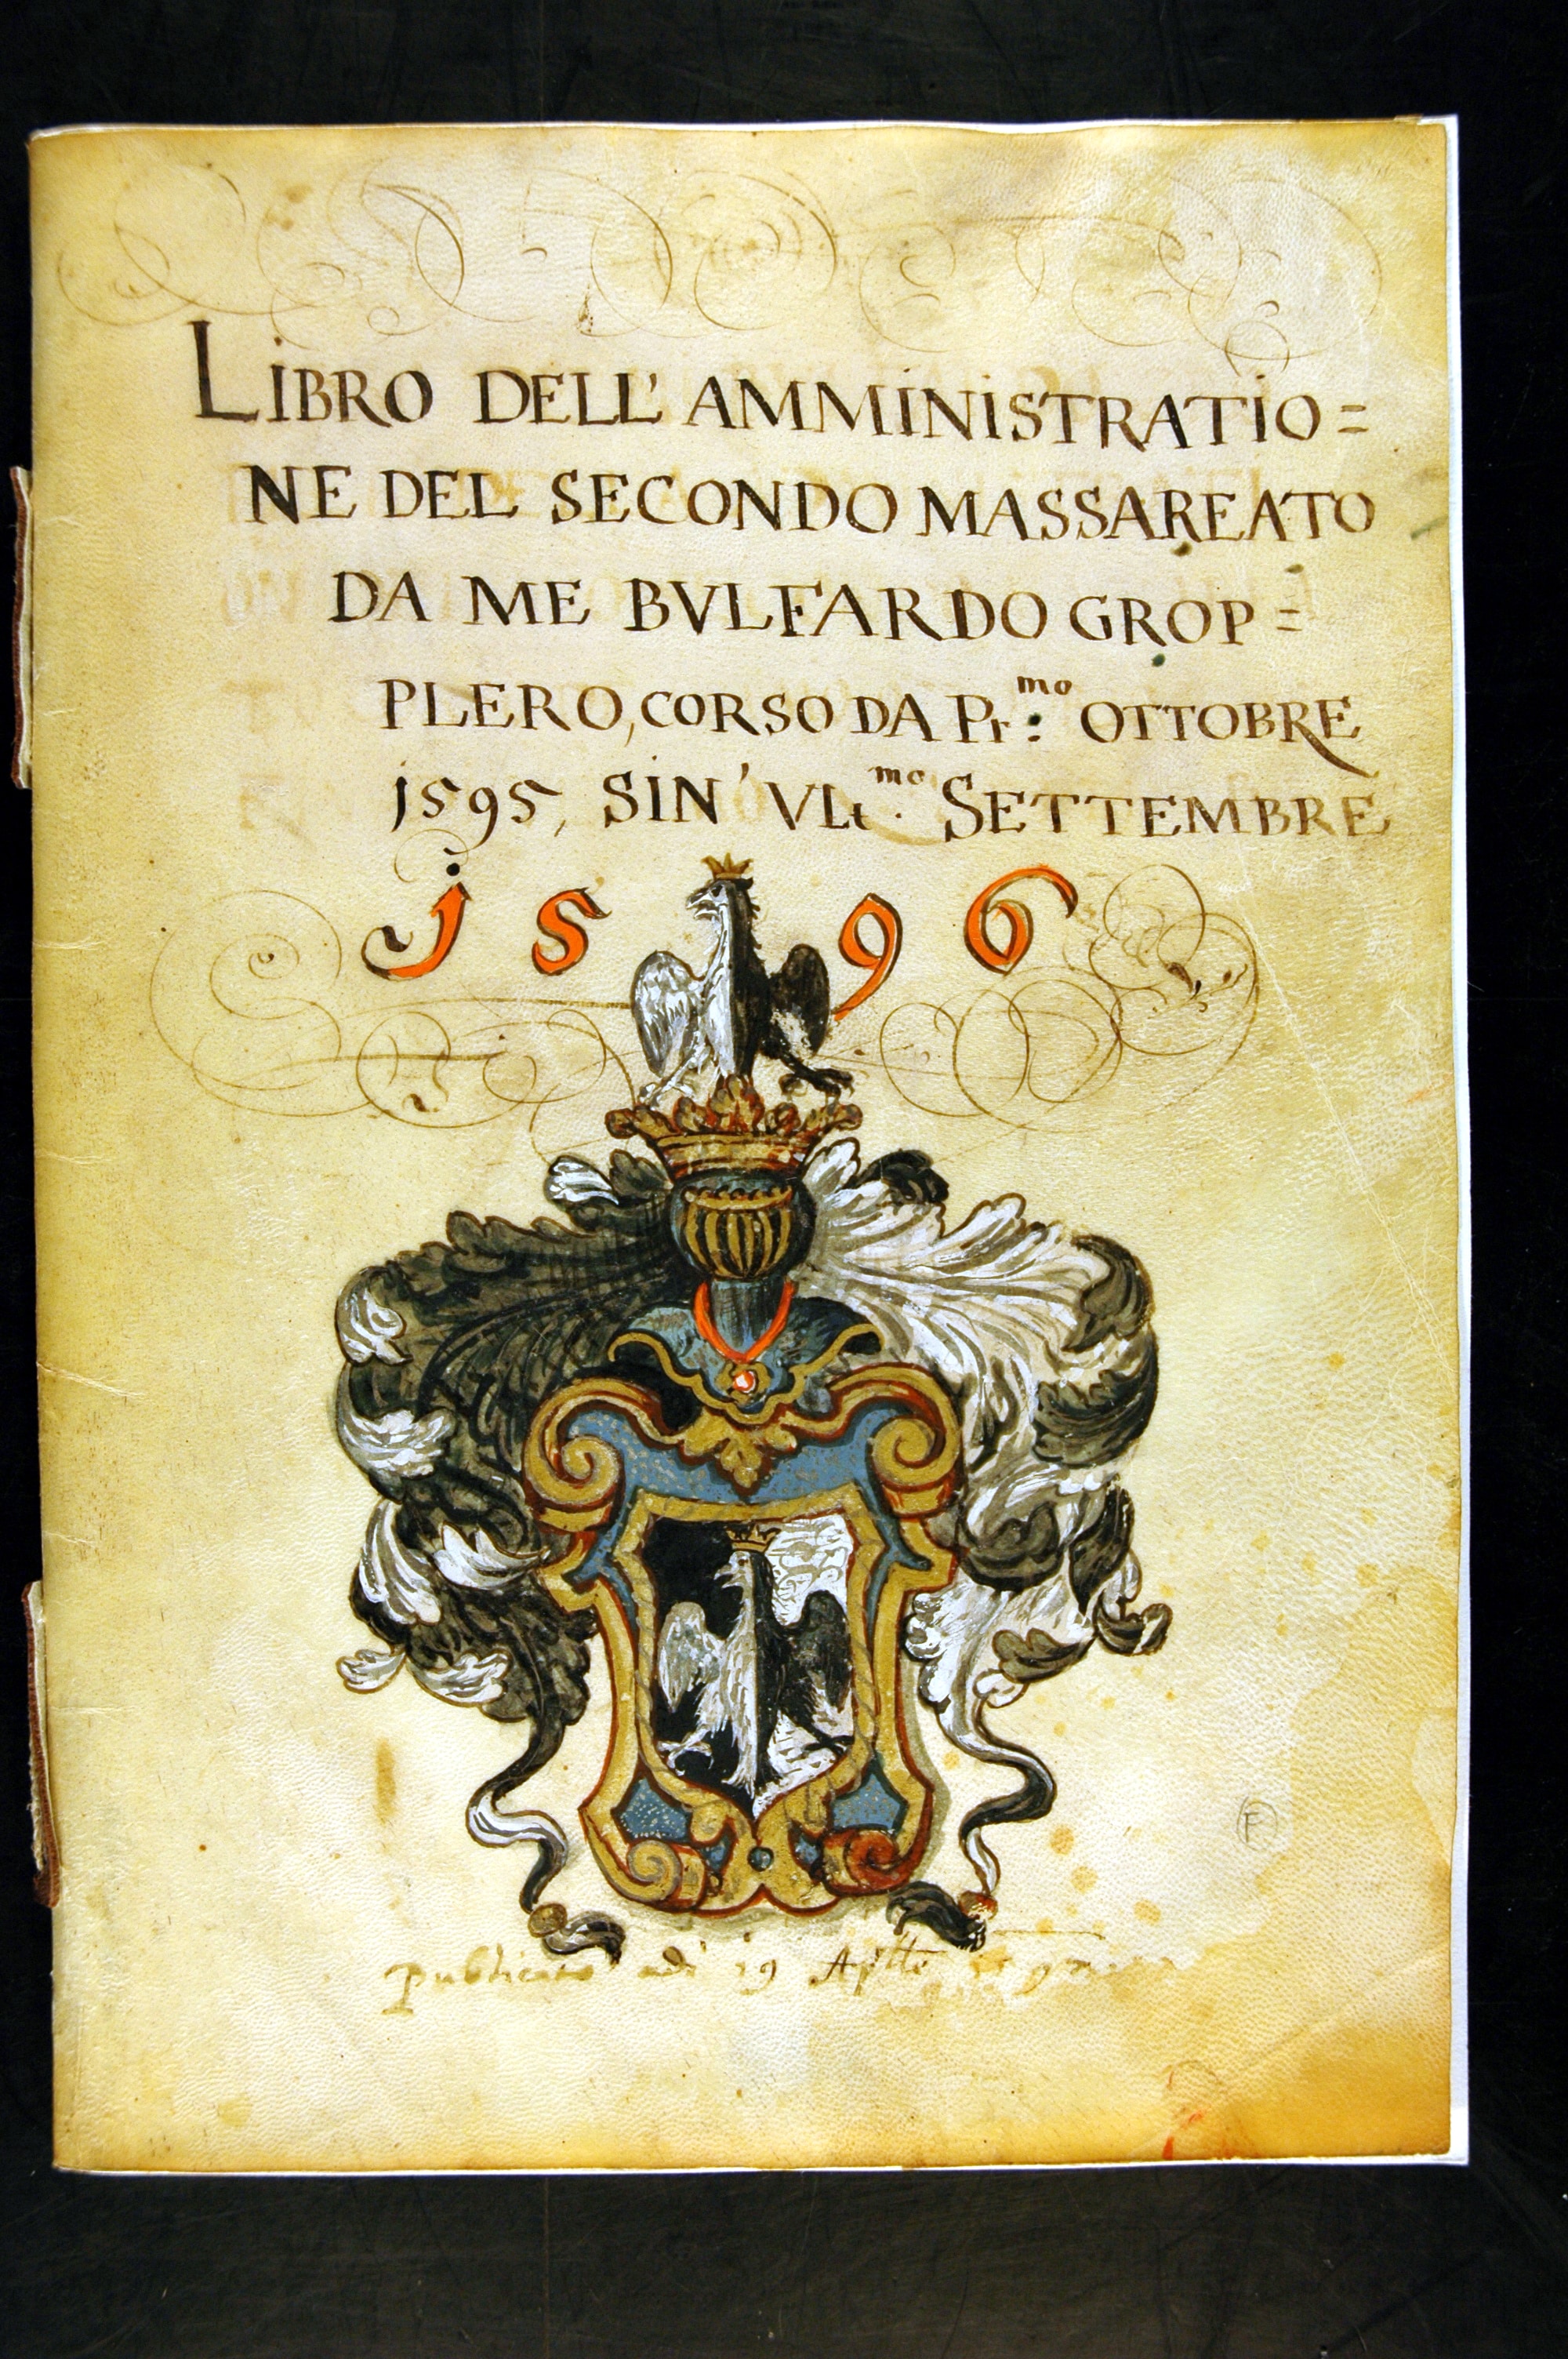 LIBRO DELL' AMMINISTRATIO=
NE DEL SECONDO MASSAREATO
DA ME BVLFARDO GROP=
PLERO, CORSO DA Pr:mo OTTOBRE
1595, SIN' VLt.mo SETTEMBRE
1596
publicato adi 19 Aplle
F